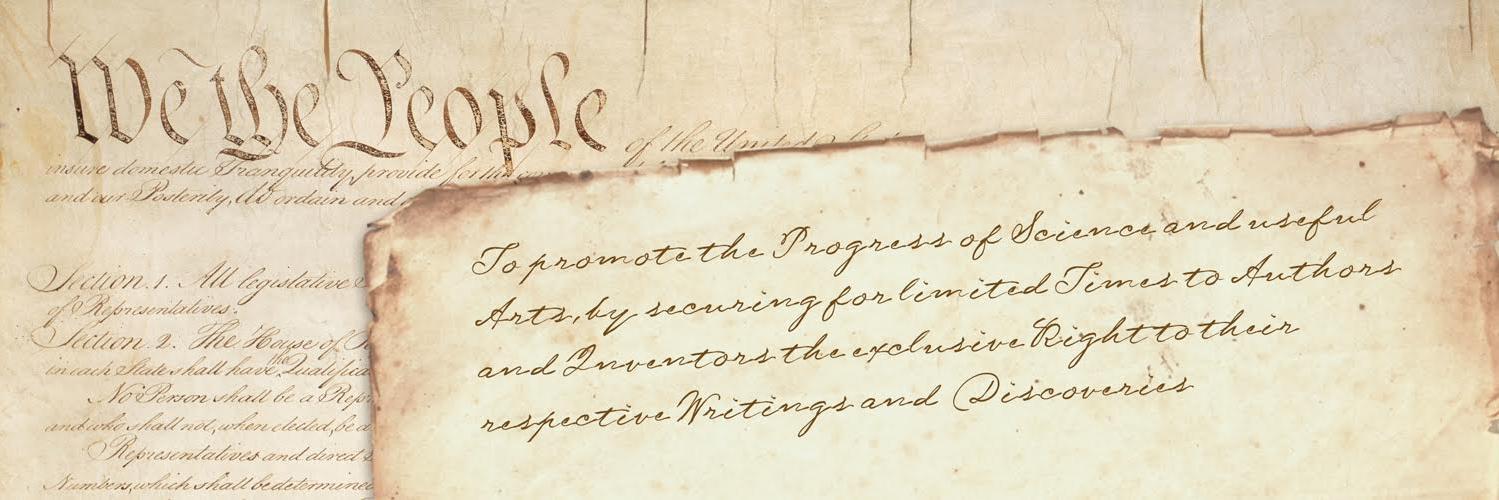 We the People
of the United
insure domestic Tranquility, provide for the
and our Posterity, do ordain and
Section. 1. All legislative
of Representatives.
Section. 2. The House of
in each State shall have the
No Person shall be a
and who shall not, when elected, be a
Representatives and direct
Numbers, which shall be determined
To promote the Progress of Science and useful
Arts, by securing for limited Times to Authors
and Inventors the exclusive Right to their
respective Writings and Discoveries